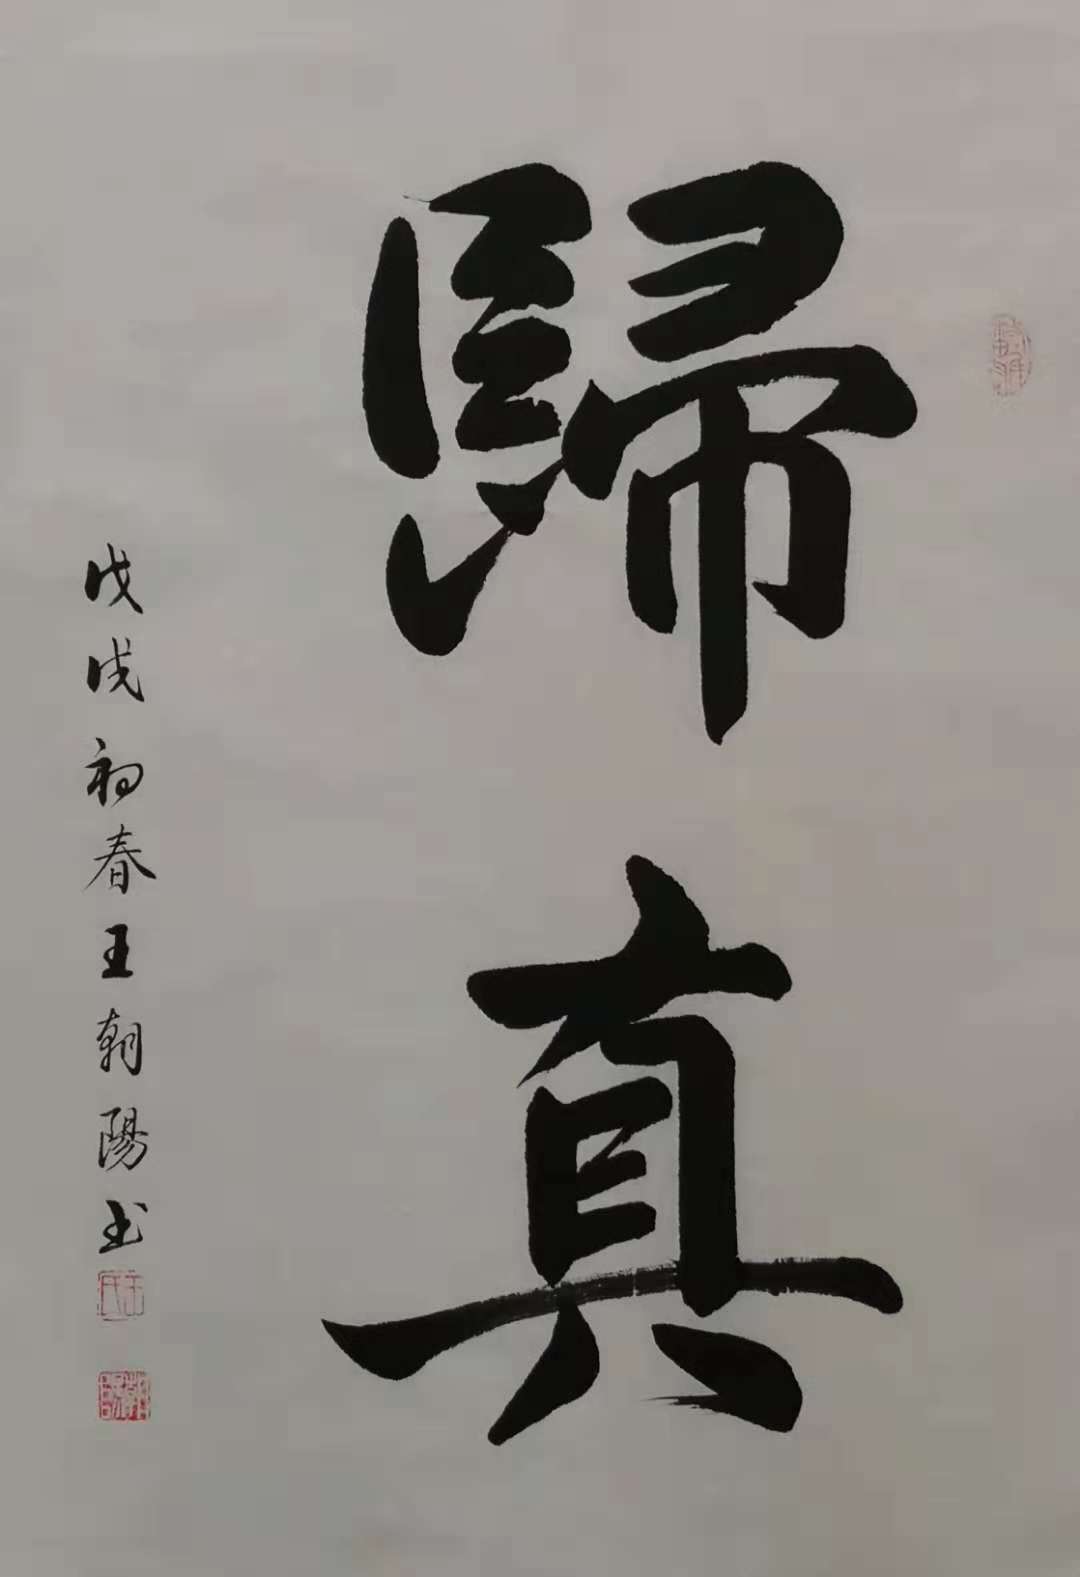 歸真
戊戌初春王朝陽书
王氏